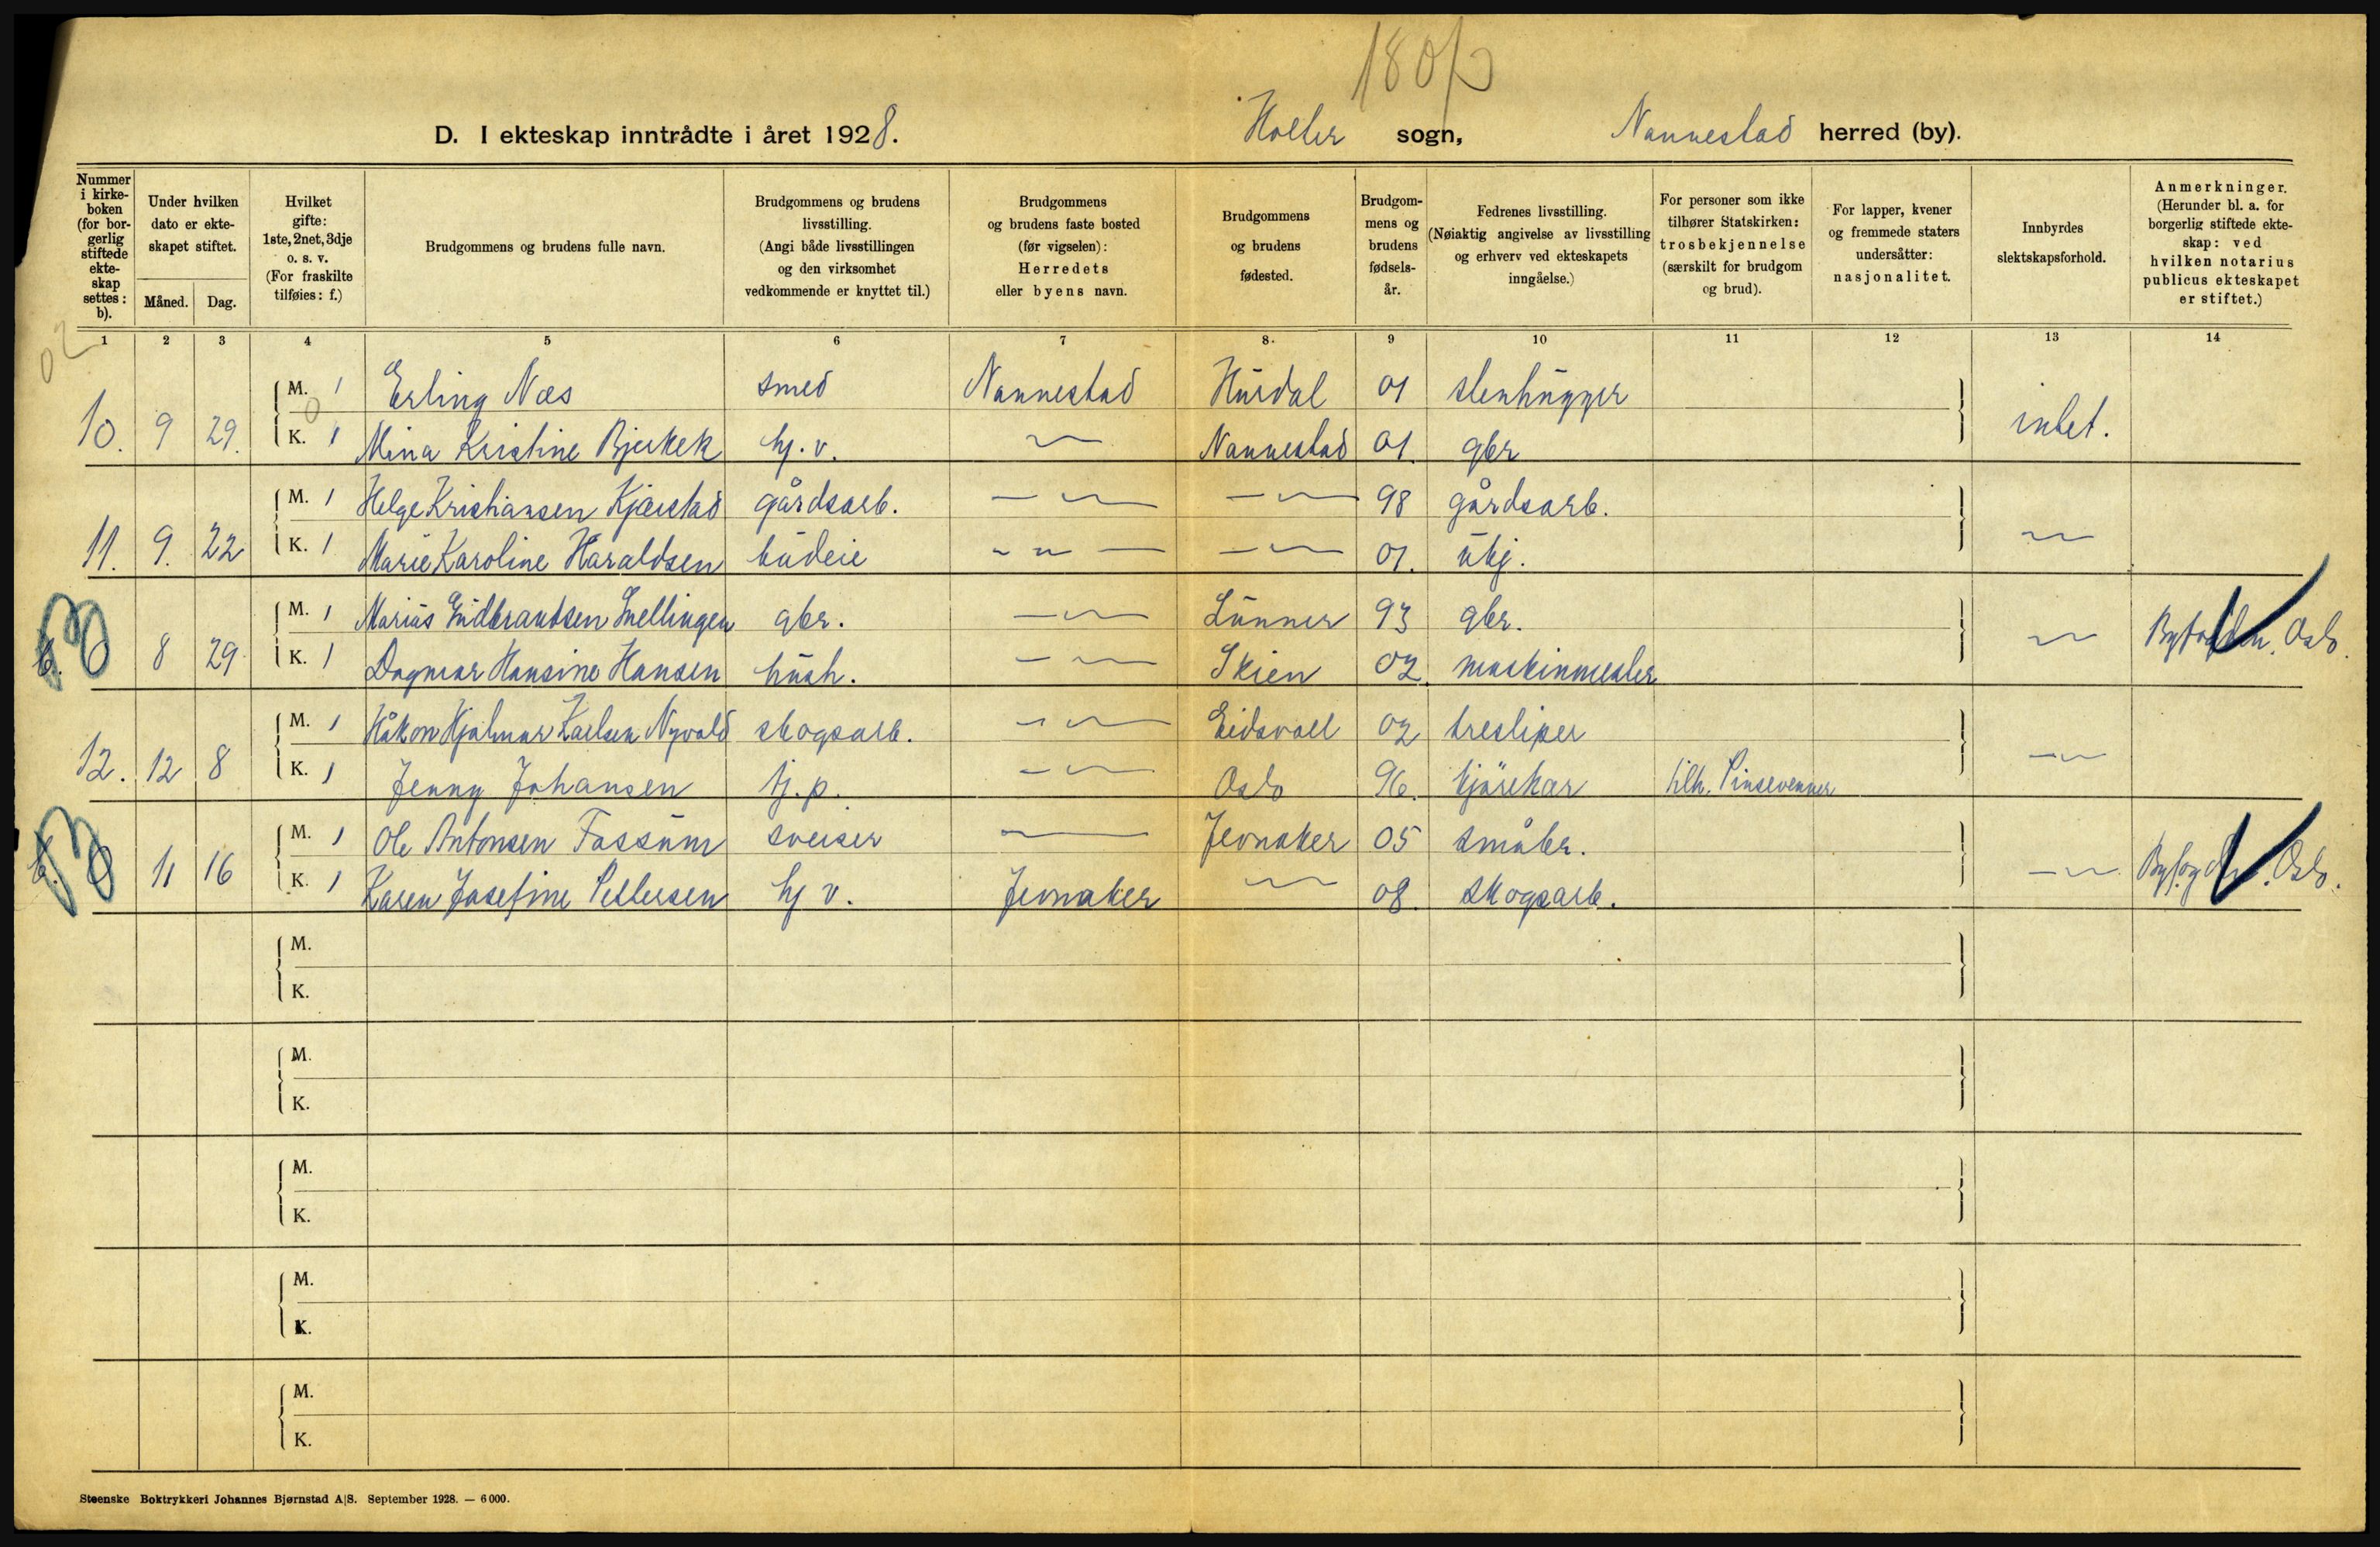 180
D. I ekteskap inntrådte i året 1928. Holter sogn, Nannestad herred (by).
Nummer i kirkeboken (for borgerlig stiftede ekteskap settes: b).
Under hvilken dato er ekteskapet stiftet.
Måned. Dag.
Hvilket gifte: 1ste, 2net, 3dje o. s. v. (For fraskilte tilføies: f.)
Brudgommens og brudens fulle navn.
Brudgommens og brudens livsstilling. (Angi både livsstillingen og den virksomhet vedkommende er knyttet til.)
Brudgommens og brudens faste bosted (før vigselen): Herredets eller byens navn.
Brudgommens og brudens fødested.
Brudgommens og brudens fødselsår.
Fedrenes livsstilling. (Nøiaktig angivelse av livsstilling og erhverv ved ekteskapets inngåelse.)
For personer som ikke tilhører Statskirken: trosbekjennelse (særskilt for brudgom og brud).
For lapper, kvener og fremmede staters undersåtter: nasjonalitet.
Innbyrdes slektskapsforhold.
Anmerkninger. (Herunder bl. a. for borgerlig stiftede ekteskap: ved hvilken notarius publicus ekteskapet er stiftet.)
02
1 2 3 4 5 6 7 8. 9 10 11 12 13 14
M. 1 Erling Næs smed Nannestad Hurdal 01 stenhugger
10. 9 29. K. 1 Mina Kristine Bjerkek hj. v. — Nannestad 01. gbr intet.
M. 1 Helge Kristiansen Kjærstad gårdsarb. — " — — " — 98 gårdsarb.
11. 9. 22 K. 1 Marie Karoline Haraldsen budeie — " — — " — 01. ukj. — " —
M. 1 Marius Gudbrandsen Snellingen gbr. — " — Lunner 93 gbr.
b. 8 29. K. 1 Dagmar Hansine Hansen hush. — " — Skien 02. maskinmester — " — Byfogden. Oslo.
M. 1 Håkon Hjalmar Karlsen Nyvold skogsarb. — " — Eidsvoll 02 tresliper
12. 12 8 K. 1 Jenny Johansen tj. p. — " — Oslo 96. kjørekar tilh. Pinsevenner — " —
M. 1 Ole Antonsen Fossum sveiser — " — Jevnaker 05 småbr.
b. 11 16 K. 1 Karen Josefine Pettersen hj v. Jevnaker — " — 08. skogsarb. — " — Byfogden. Oslo.
M.
K.
M.
K.
M.
K.
M.
K.
M.
K.
Steenske Boktrykkeri Johannes Bjørnstad A|S. September 1928. — 6000.